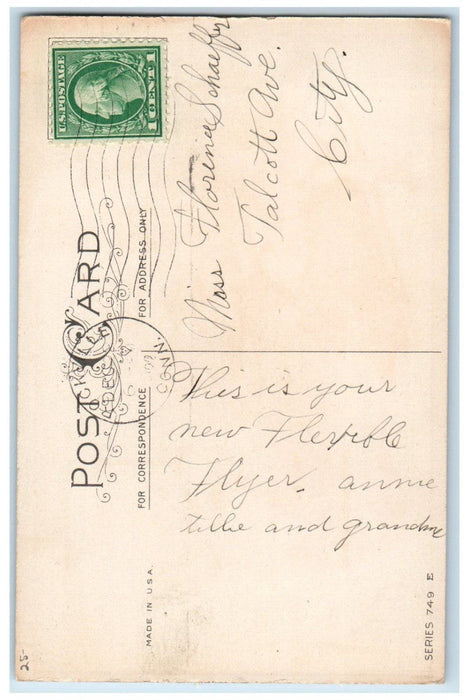 U.S. POSTAGE
1 CENT 1
POST CARD
ROCKVILLE
DEC
CONN.
FOR ADDRESS ONLY
Miss Florence Schaeffer
Talcott Ave.
City.
FOR CORRESPONDENCE
This is your
new Flexible
Flyer. annie
tillie and grandma
MADE IN U.S.A.
SERIES 749 E
25-